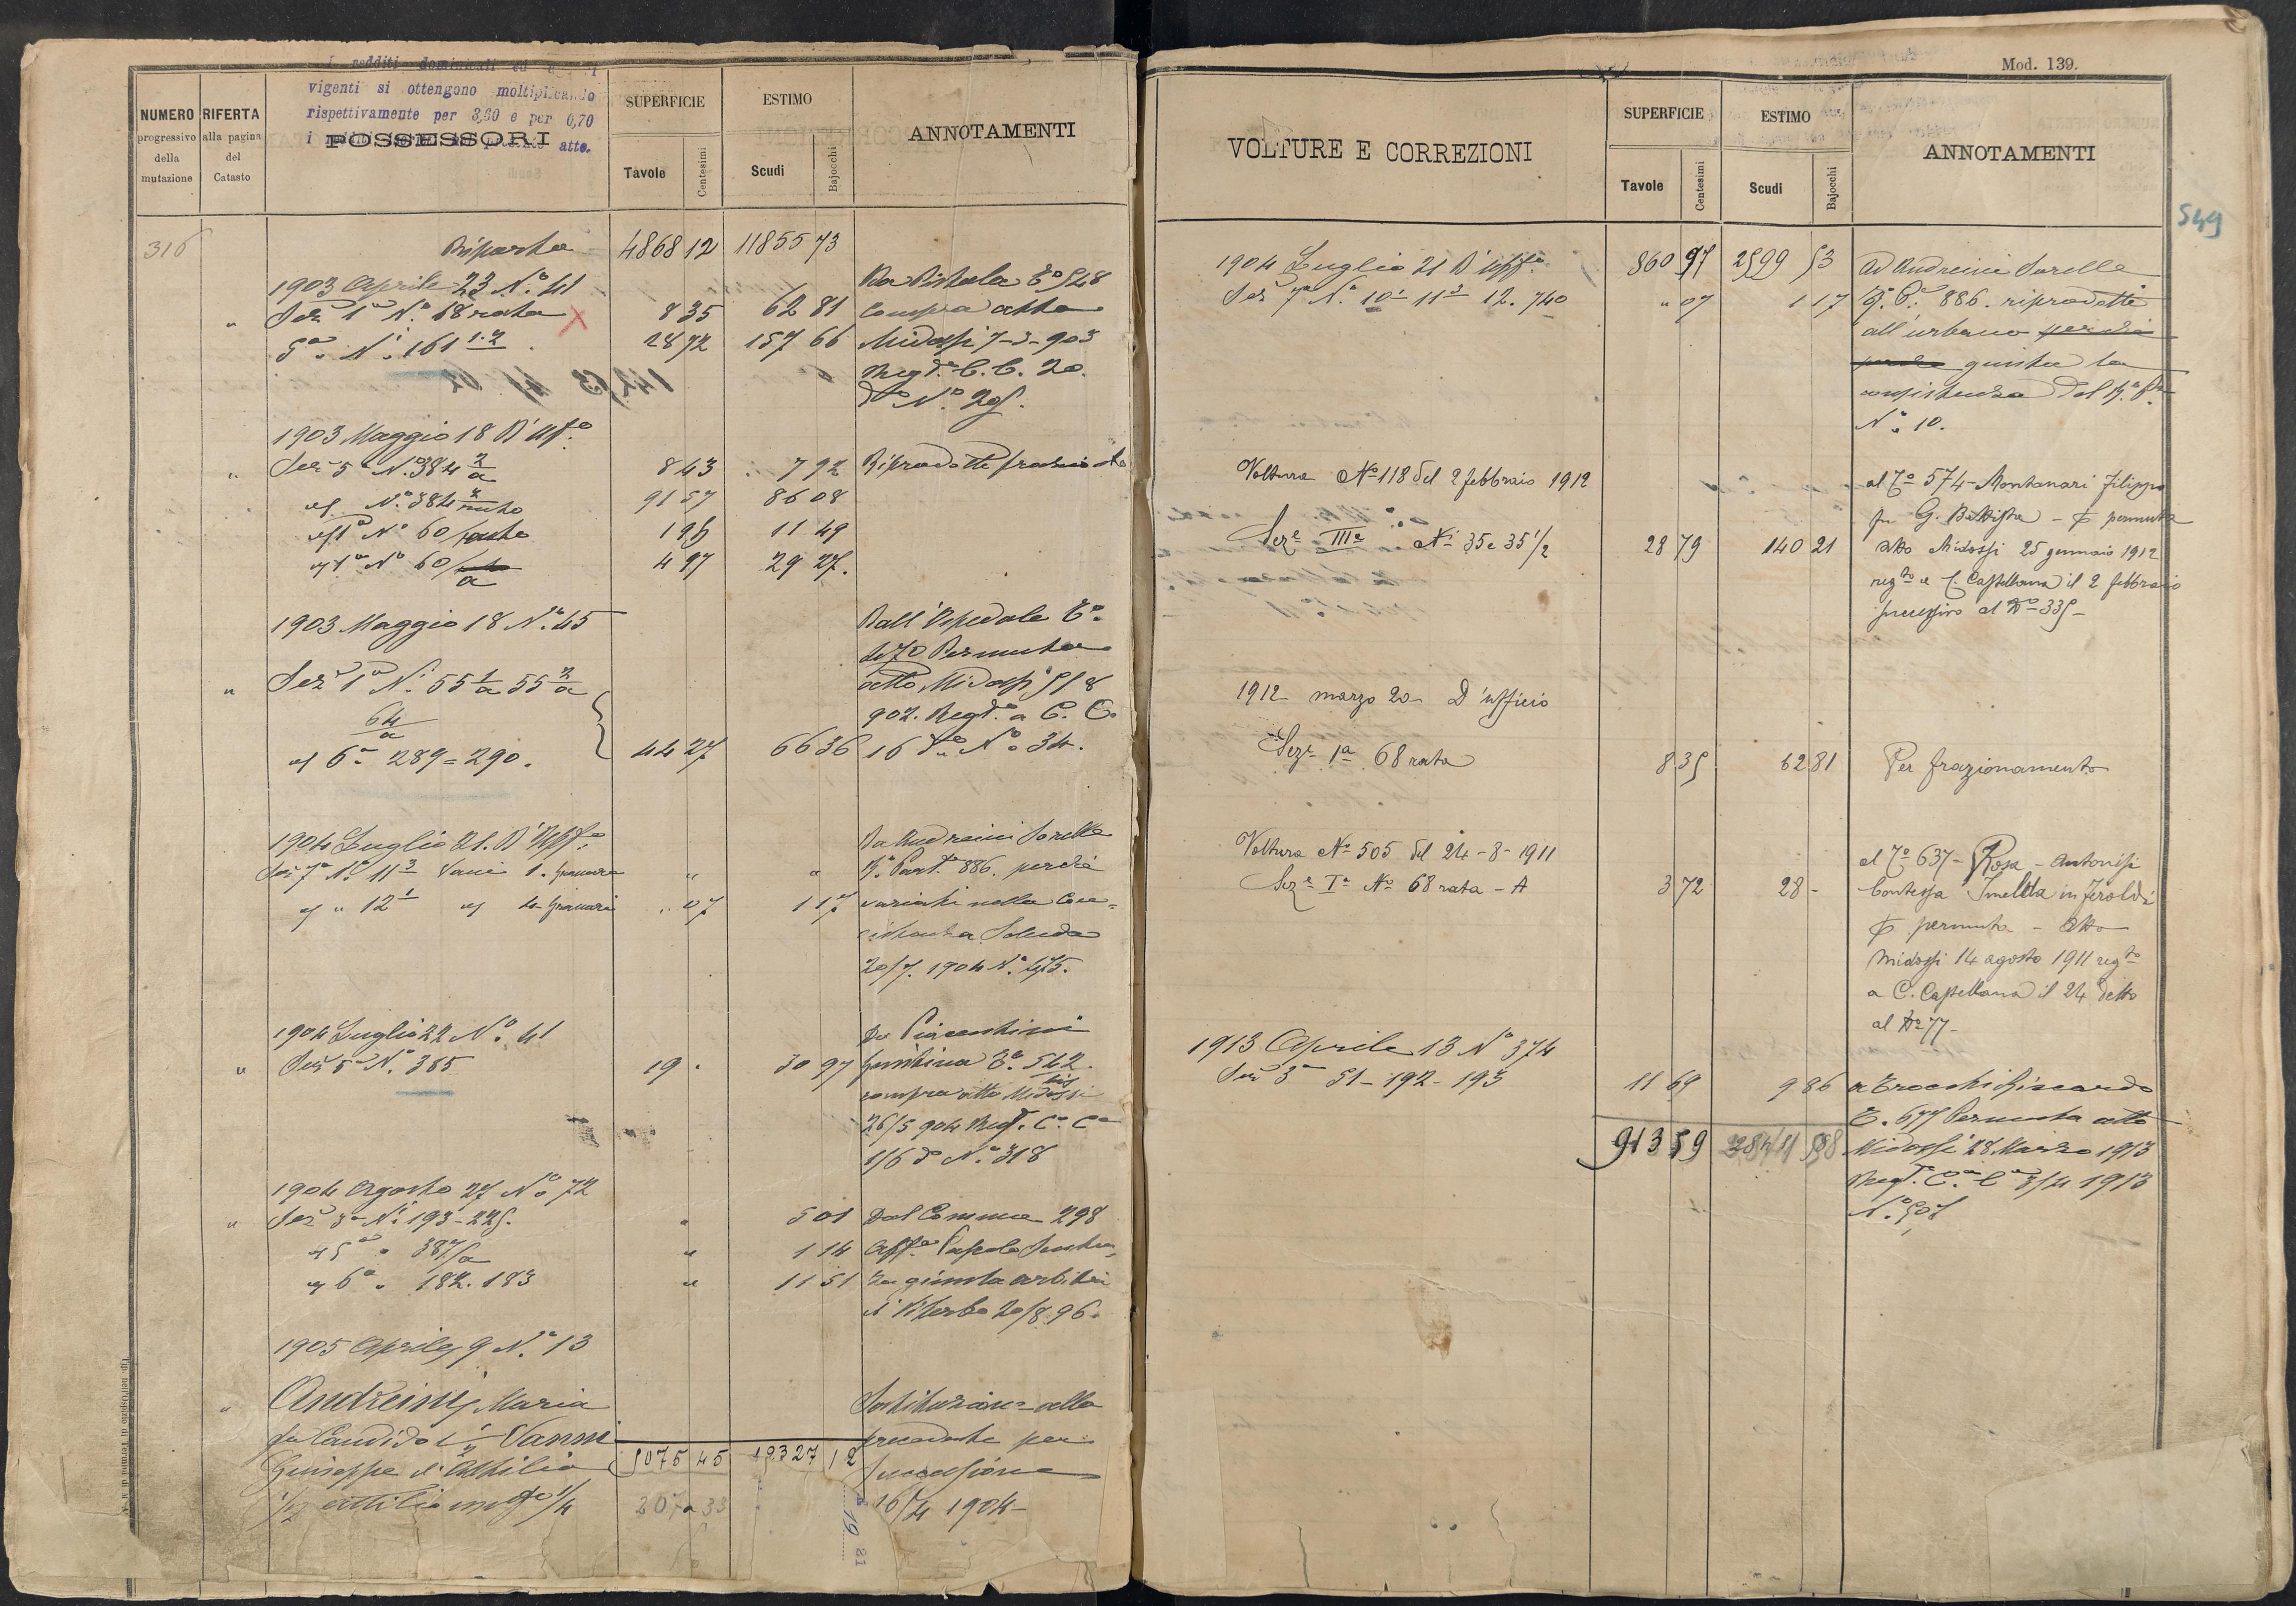 redditi dominicali ed
vigenti si ottengono moltiplicando
rispettivamente per 3,60 e per 0,70
i atto.
NUMERO progressivo della mutazione
RIFERTA alla pagina del Catasto
POSSESSORI
SUPERFICIE
Tavole Centesimi
ESTIMO
Scudi Bajocchi
ANNOTAMENTI
316 Riporto 4868 12 11855 73
1903 Aprile 23 N.º 41 Da Pistola T.º 548
" Sez 1ª N.º 68 rata X 8 35 62 81 Compra atto
5ª " N.i 161 1.2 28 72 157 66 Midossi 7-3-903
Regt.º C.C. 20.
d.º N.º 295.
1903 Maggio 18 D'Uff.º
" Sez 5ª N.º 384 2/a 8 43 7 92 Riprodotte
N.º 384 2/resto 91 57 86 08
1ª N.º 60/resto 1 95 11 49
1ª N.º 60/a 4 97 29 27.
1903 Maggio 18 N.º 45 Dall'Ospedale T.º
470 Permuta
" Sez 1ª N.i 55 1/a 55 2/a atto Midossi
64/a 902. Regt.º a C. C.
6ª 289=290. 44 27 66 36 16 d.º N.º 34.
1904 Luglio 21. D'Uff.º Da Andreini Sorelle
Sez 7ª N.º 11 3 Vani 1. " " R.ª Part.ª 886. perchè
" " 12 1 " .. 07 1 17 variati nella Con=
sistenza Scheda
20/7. 1904 N.º 475.
1904 Luglio 22 N.º 41 Da Piacentini
" Sez 5ª N.º 385 19 . 30 97 Giustina T.º 542 bis
compra atto Midossi
26/5 904 Regt. C.ª C.ª
1/6 d.º N.º 318
1904 Agosto 27 N.º 72
" Sez 3ª N.i 193-225. " 5 01 Dal Comune 298
5ª " 387/a " 1 14 Aff.ne Pascolo Senten
6ª " 182. 183 " 11 51 za giunta arbitri
di Viterbo 20/8 96.
1905 Aprile 9 N.º 13
" Andreini Maria Sostituzione alla
fu Candido in Vanni precedente per
Giuseppe di Attilio 5075 45 12327 12 successione
1/2 Attilio usuf.º 1/4 16/4 1904 -
19 21
Mod. 139.
549
VOLTURE E CORREZIONI
SUPERFICIE
Tavole Centesimi
ESTIMO
Scudi Bajocchi
ANNOTAMENTI
1904 Luglio 21 D'Uff.º 860 97 2599 53 Ad Andreini Sorelle
Sez 7ª N.i 10 1 11 3 12. 740 " 07 1 17 R.ª P.ª 886. riprodotti
all'urbano perchè
giusta la
consistenza del R.º
N.º 10.
Voltura Nº 118 del 2 febbraio 1912 al Tº 574 - Montanari Filippo
fu G. Battista - p permuta
Sez.e IIIª Ni 35 e 35 1/2 28 79 140 21 atto Midossi 25 gennaio 1912
regto a C. Castellana il 2 febbraio
successivo al Nº 335 -
1912 marzo 20 D'ufficio
Seze 1ª 68 rata 8 35 62 81 Per frazionamento
Voltura Nº 505 del 24-8-1911 al Tº 637 - Rosa - Antonisi
Seze Iª Nº 68 rata - A 3 72 28 - Contessa Imelda in Feroldi
p permuta - atto
Midossi 14 agosto 1911 regto
a C. Castellana il 24 detto
al Nº 77 -
1913 Aprile 13 Nº 374
Sez 3ª 51-192-193 11 69 9 86 a Trocchi Riccardo
T. 677 Permuta atto
913 59 Midossi 28 Marzo 1913
Regt.º C.ª C.ª 3/4 1913
N.º 507